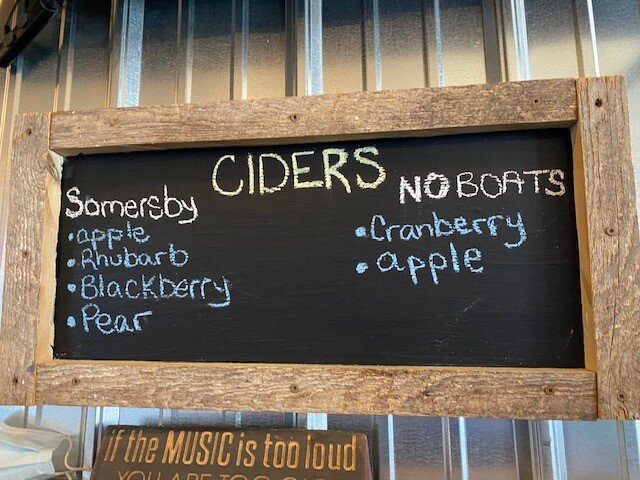 CIDERS
Somersby
• apple
• Rhubarb
• Blackberry
• Pear
NO BOATS
• Cranberry
• apple
if the MUSIC is too loud
YOU ARE TOO